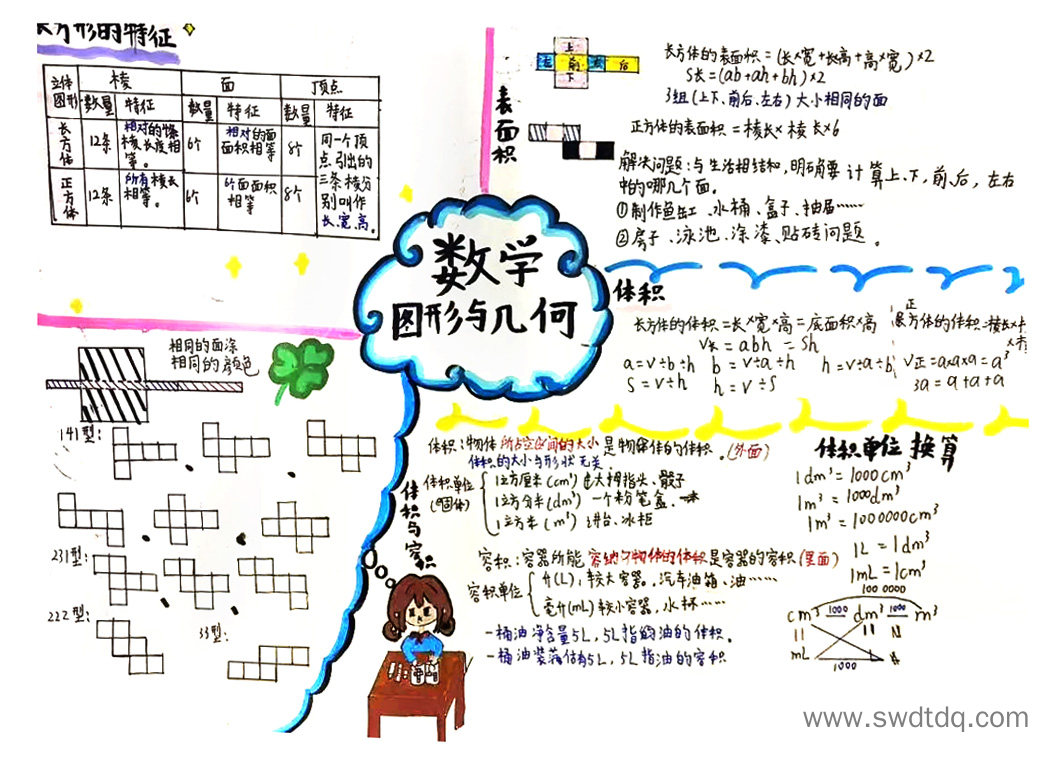 长方形的特征
立体图形 棱 面 顶点
数量 特征 数量 特征 数量 特征
长方体 12条 相对的4条棱长度相等。 6个 相对的面面积相等 8个 同一个顶点引出的三条棱分别叫作长、宽、高。
正方体 12条 所有棱长相等。 6个 6个面面积相等 8个
数学
图形与几何
表面积
上
左 前 右 后
下
长方体的表面积=(长×宽+长×高+高×宽)×2
S长=(ab+ah+bh)×2
3组(上下、前后、左右)大小相同的面
正方体的表面积=棱长×棱长×6
解决问题:与生活相结和,明确要计算上、下,前、后,左右
中的哪几个面。
①制作鱼缸、水桶、盒子、抽屉……
②房子、泳池、涂漆、贴砖问题。
体积
长方体的体积=长×宽×高=底面积×高
V长=abh=Sh
a=V÷b÷h b=V÷a÷h h=V÷a÷b
S=V÷h h=V÷S
正方体的体积=棱长×
V正=a×a×a=a³
3a=a+a+a
相同的面涂
相同的颜色
141型:
231型:
222型:
33型:
体积与容积
体积:物体所占空间的大小是物体的体积。(外面)
体积的大小与形状无关
体积单位
(固体)
立方厘米(cm³) 大拇指头、骰子
立方分米(dm³) 一个粉笔盒、
立方米(m³) 讲台、冰柜
容积:容器所能容纳物体的体积是容器的容积(里面)
容积单位
升(L):较大容器。汽车油箱、油……
毫升(mL)较小容器,水杯……
一桶油净含量5L,5L指的油的体积。
一桶油装满有5L,5L指油的容积
体积单位换算
1dm³=1000cm³
1m³=1000dm³
1m³=1000000cm³
1L=1dm³
1mL=1cm³
1000000
cm³ 1000 dm³ 1000 m³
mL 1000
www.swdtdq.com